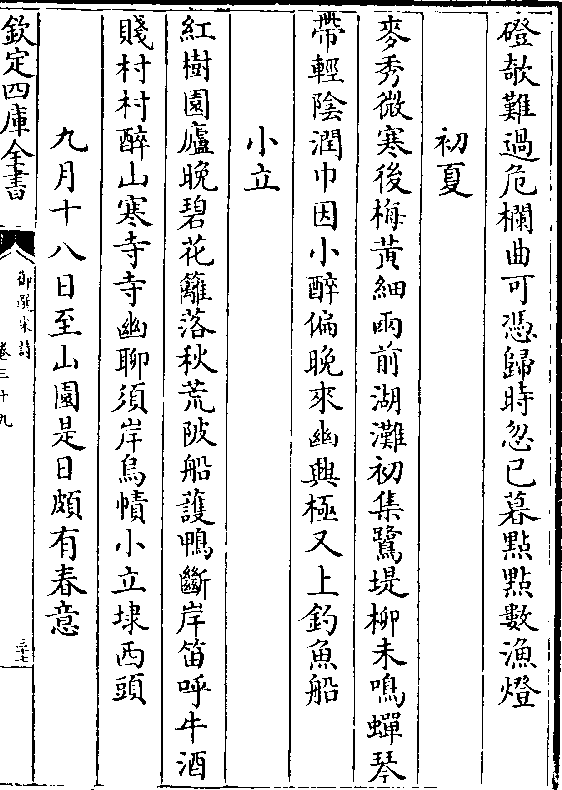 磴欹難過危欄曲可憑歸時忽已暮點點數漁燈
初夏
麥秀微寒後梅黃細雨前湖灘初集鷺堤柳未鳴蟬琴
帶輕陰潤巾因小醉偏晚來幽興極又上釣魚船
小立
紅樹園廬晚碧花籬落秋荒陂船護鴨斷岸笛呼牛酒
賤村村醉山寒寺寺幽聊須岸烏幘小立埭西頭
九月十八日至山園是日頗有春意
欽定四庫全書
御選宋詩
卷三十九
三十七